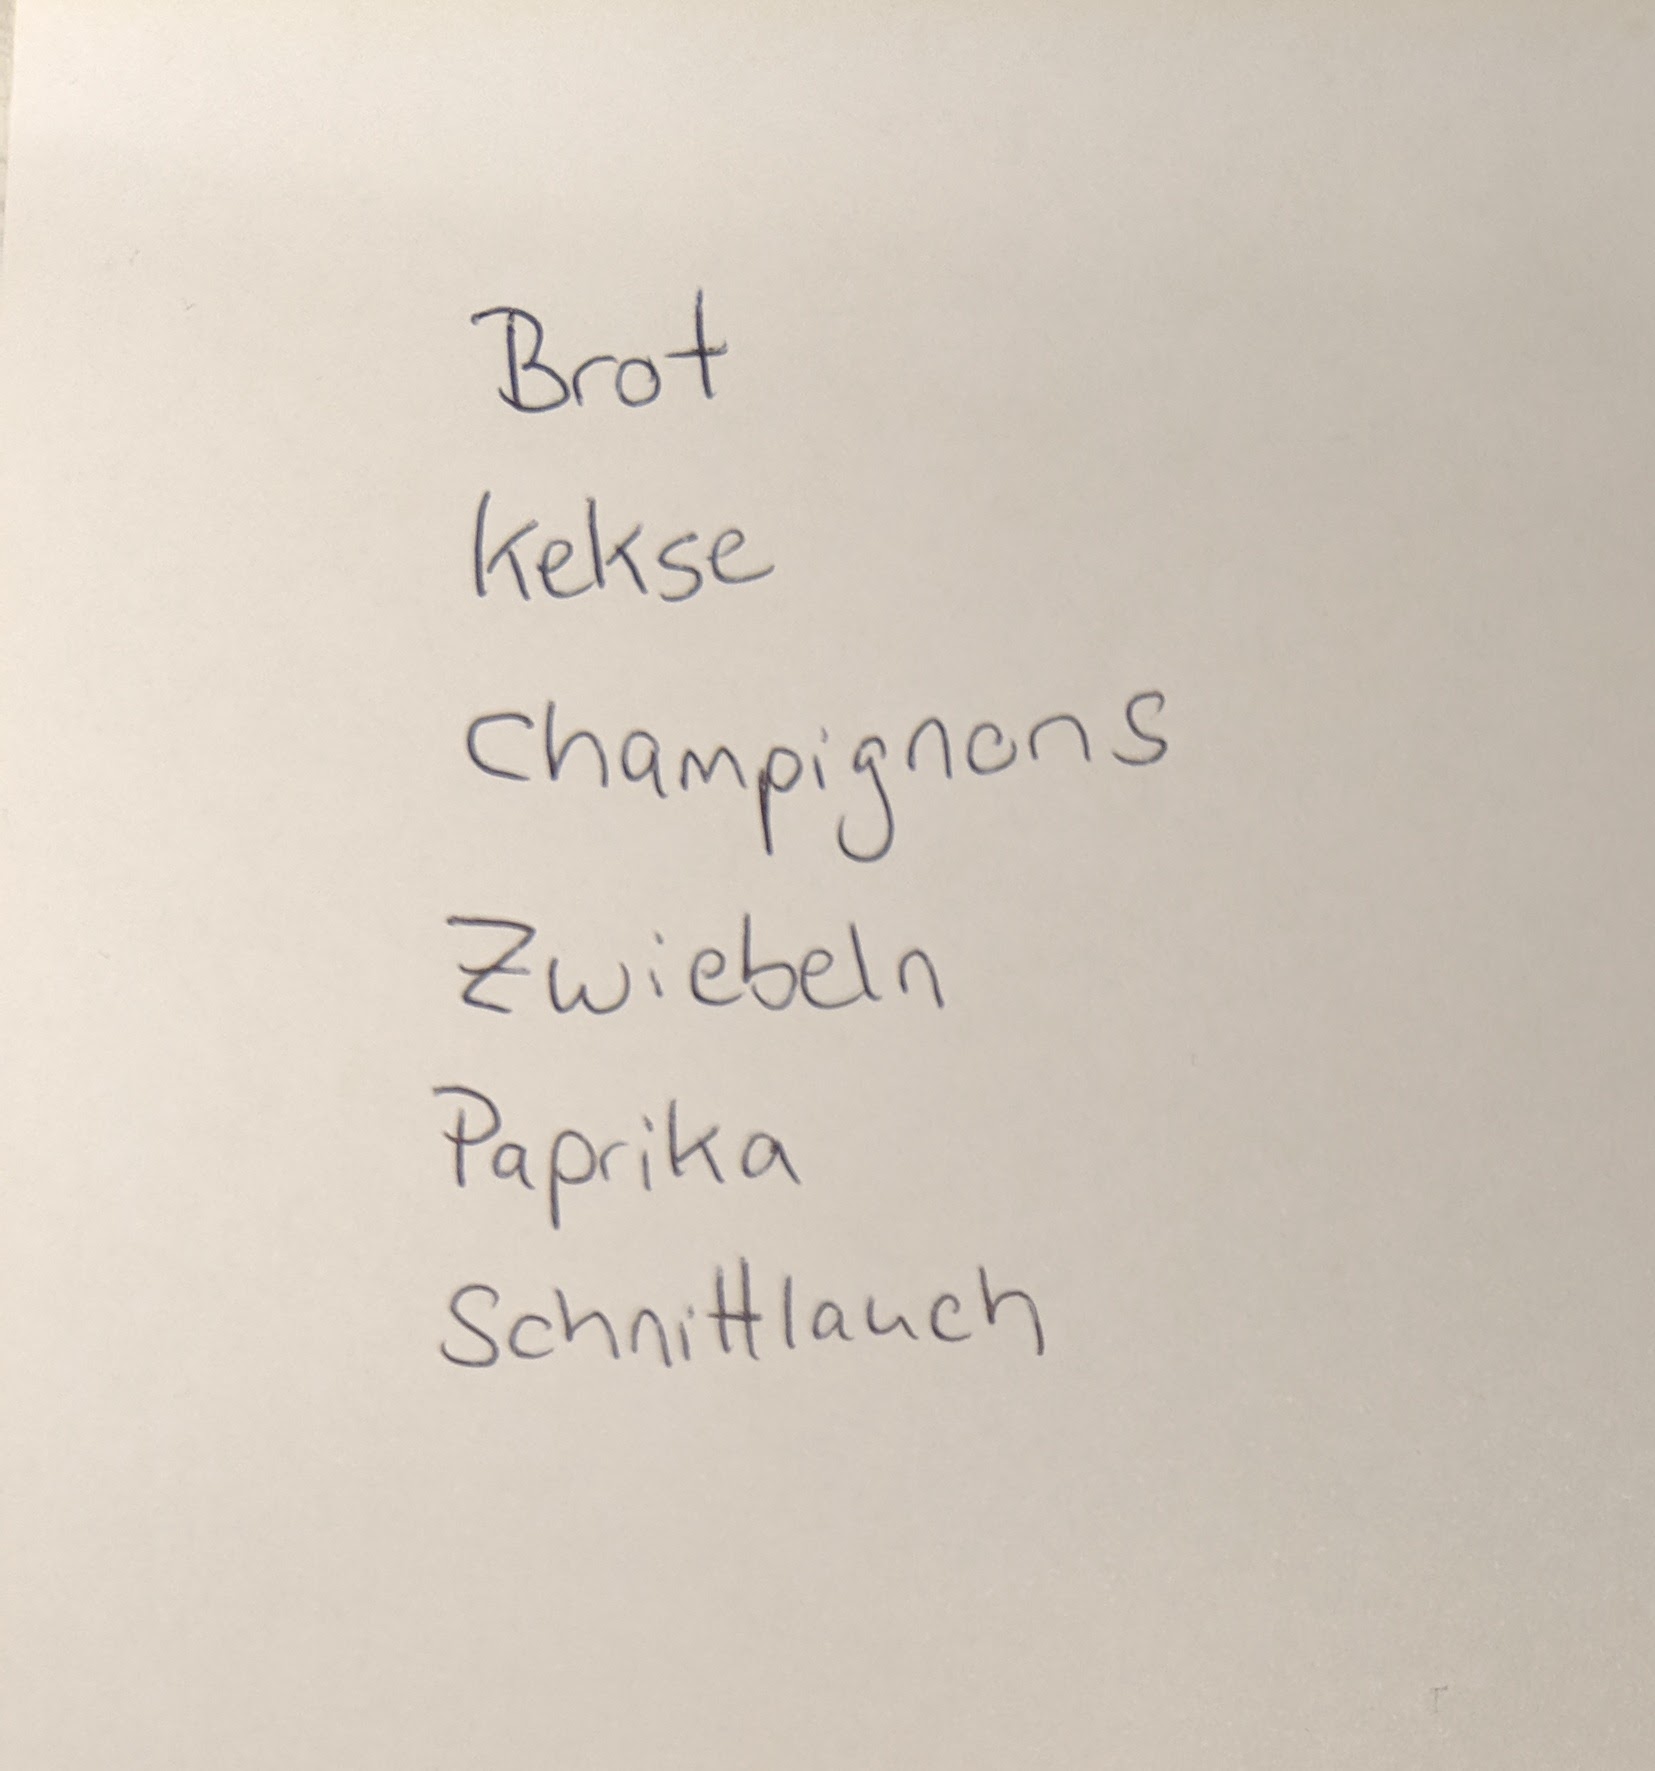 Brot
Kekse
Champignons
Zwiebeln
Paprika
Schnittlauch